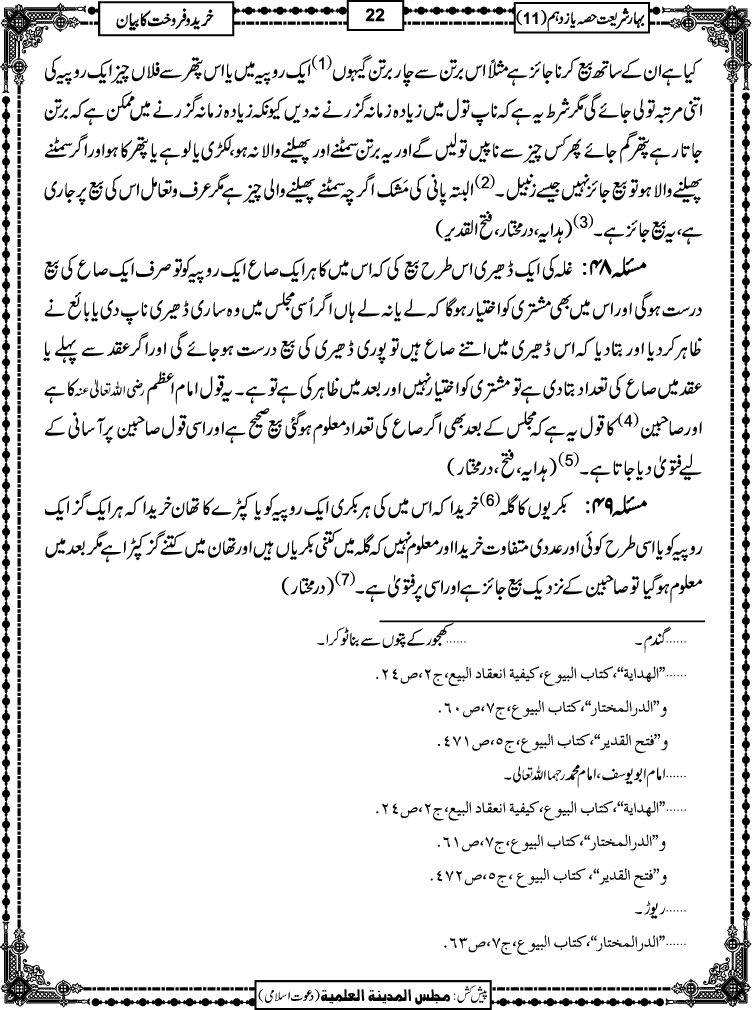 بہارِ شریعت حصہ یازدہم (11)
22
خرید و فروخت کا بیان
کیا ہے ان کے ساتھ بیع کرنا جائز ہے مثلاً اس برتن سے چار برتن گیہوں (1) ایک روپیہ میں یا اس پتھر سے فلاں چیز ایک روپیہ کی
اتنی مرتبہ تولی جائے گی مگر شرط یہ ہے کہ ناپ تول میں زیادہ زمانہ گزرنے نہ دیں کیونکہ زیادہ زمانہ گزرنے میں ممکن ہے کہ برتن
جاتا رہے پتھر گم جائے پھر کس چیز سے ناپیں تولیں گے اور یہ برتن سمٹنے اور پھیلنے والا نہ ہو، لکڑی یا لوہے یا پتھر کا ہو اور اگر سمٹنے
پھیلنے والا ہو تو بیع جائز نہیں جیسے زنبیل۔ (2) البتہ پانی کی مَشک اگرچہ سمٹنے پھیلنے والی چیز ہے مگر عرف و تعامل اس کی بیع پر جاری
ہے، یہ بیع جائز ہے۔ (3) (ہدایہ، درمختار، فتح القدیر)
مسئلہ ۴۸: غلہ کی ایک ڈھیری اس طرح بیع کی کہ اس میں کا ہر ایک صاع ایک روپیہ کو تو صرف ایک صاع کی بیع
درست ہوگی اور اس میں بھی مشتری کو اختیار ہوگا کہ لے یا نہ لے ہاں اگر اُسی مجلس میں وہ ساری ڈھیری ناپ دی یا بائع نے
ظاہر کر دیا اور بتا دیا کہ اس ڈھیری میں اتنے صاع ہیں تو پوری ڈھیری کی بیع درست ہو جائے گی اور اگر عقد سے پہلے یا
عقد میں صاع کی تعداد بتا دی ہے تو مشتری کو اختیار نہیں اور بعد میں ظاہر کی ہے تو ہے۔ یہ قول امام اعظم رضی اللہ تعالیٰ عنہ کا ہے
اور صاحبین (4) کا قول یہ ہے کہ مجلس کے بعد بھی اگر صاع کی تعداد معلوم ہوگئی بیع صحیح ہے اور اسی قول صاحبین پر آسانی کے
لیے فتویٰ دیا جاتا ہے۔ (5) (ہدایہ، فتح، درمختار)
مسئلہ ۴۹: بکریوں کا گلہ (6) خریدا کہ اس میں کی ہر بکری ایک روپیہ کو یا کپڑے کا تھان خریدا کہ ہر ایک گز ایک
روپیہ کو یا اسی طرح کوئی اور عددی متفاوت خریدا اور معلوم نہیں کہ گلہ میں کتنی بکریاں ہیں اور تھان میں کتنے گز کپڑا ہے مگر بعد میں
معلوم ہوگیا تو صاحبین کے نزدیک بیع جائز ہے اور اسی پر فتویٰ ہے۔ (7) (درمختار)
......گندم۔ ......کھجور کے پتوں سے بنا ٹوکرا۔
......”الهداية“، كتاب البيوع، كيفية انعقاد البيع، ج۲، ص۲۴.
و ”الدرالمختار“، كتاب البيوع، ج۷، ص۶۰.
و ”فتح القدير“، كتاب البيوع، ج۵، ص۴۷۱.
......امام ابو یوسف، امام محمد رحمہما اللہ تعالیٰ۔
......”الهداية“، كتاب البيوع، كيفية انعقاد البيع، ج۲، ص۲۴.
و ”الدرالمختار“، كتاب البيوع، ج۷، ص۶۱.
و ”فتح القدير“، كتاب البيوع، ج۵، ص۴۷۲.
......ریوڑ۔
......”الدرالمختار“، كتاب البيوع، ج۷، ص۶۳.
پیش کش: مجلس المدینة العلمیة (دعوتِ اسلامی)